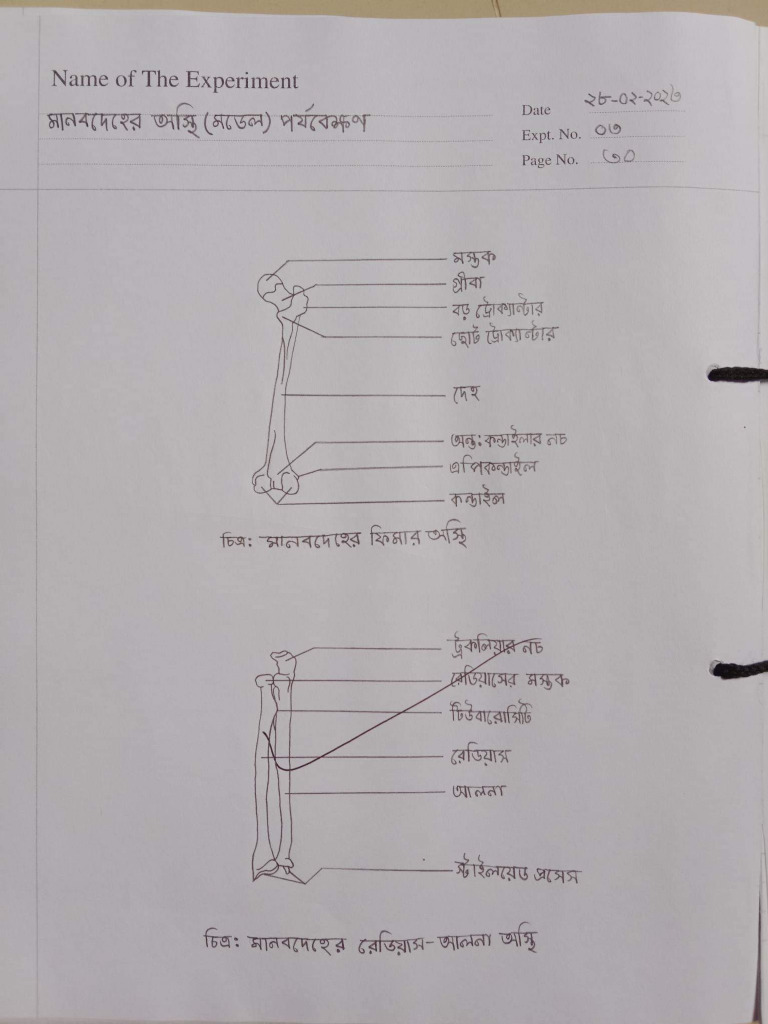 Name of The Experiment
মানবদেহের অস্থি (মডেল) পর্যবেক্ষণ
Date ২৮-০২-২০২৩
Expt. No. ০৩
Page No. ৩০
মস্তক
গ্রীবা
বড় ট্রোক্যান্টার
ছোট ট্রোক্যান্টার
দেহ
অন্ত:কন্ডাইলার নচ
এপিকন্ডাইল
কন্ডাইল
চিত্র: মানবদেহের ফিমার অস্থি
ট্রকলিয়ার নচ
রেডিয়াসের মস্তক
টিউবারোসিটি
রেডিয়াস
আলনা
স্টাইলয়েড প্রসেস
চিত্র: মানবদেহের রেডিয়াস-আলনা অস্থি